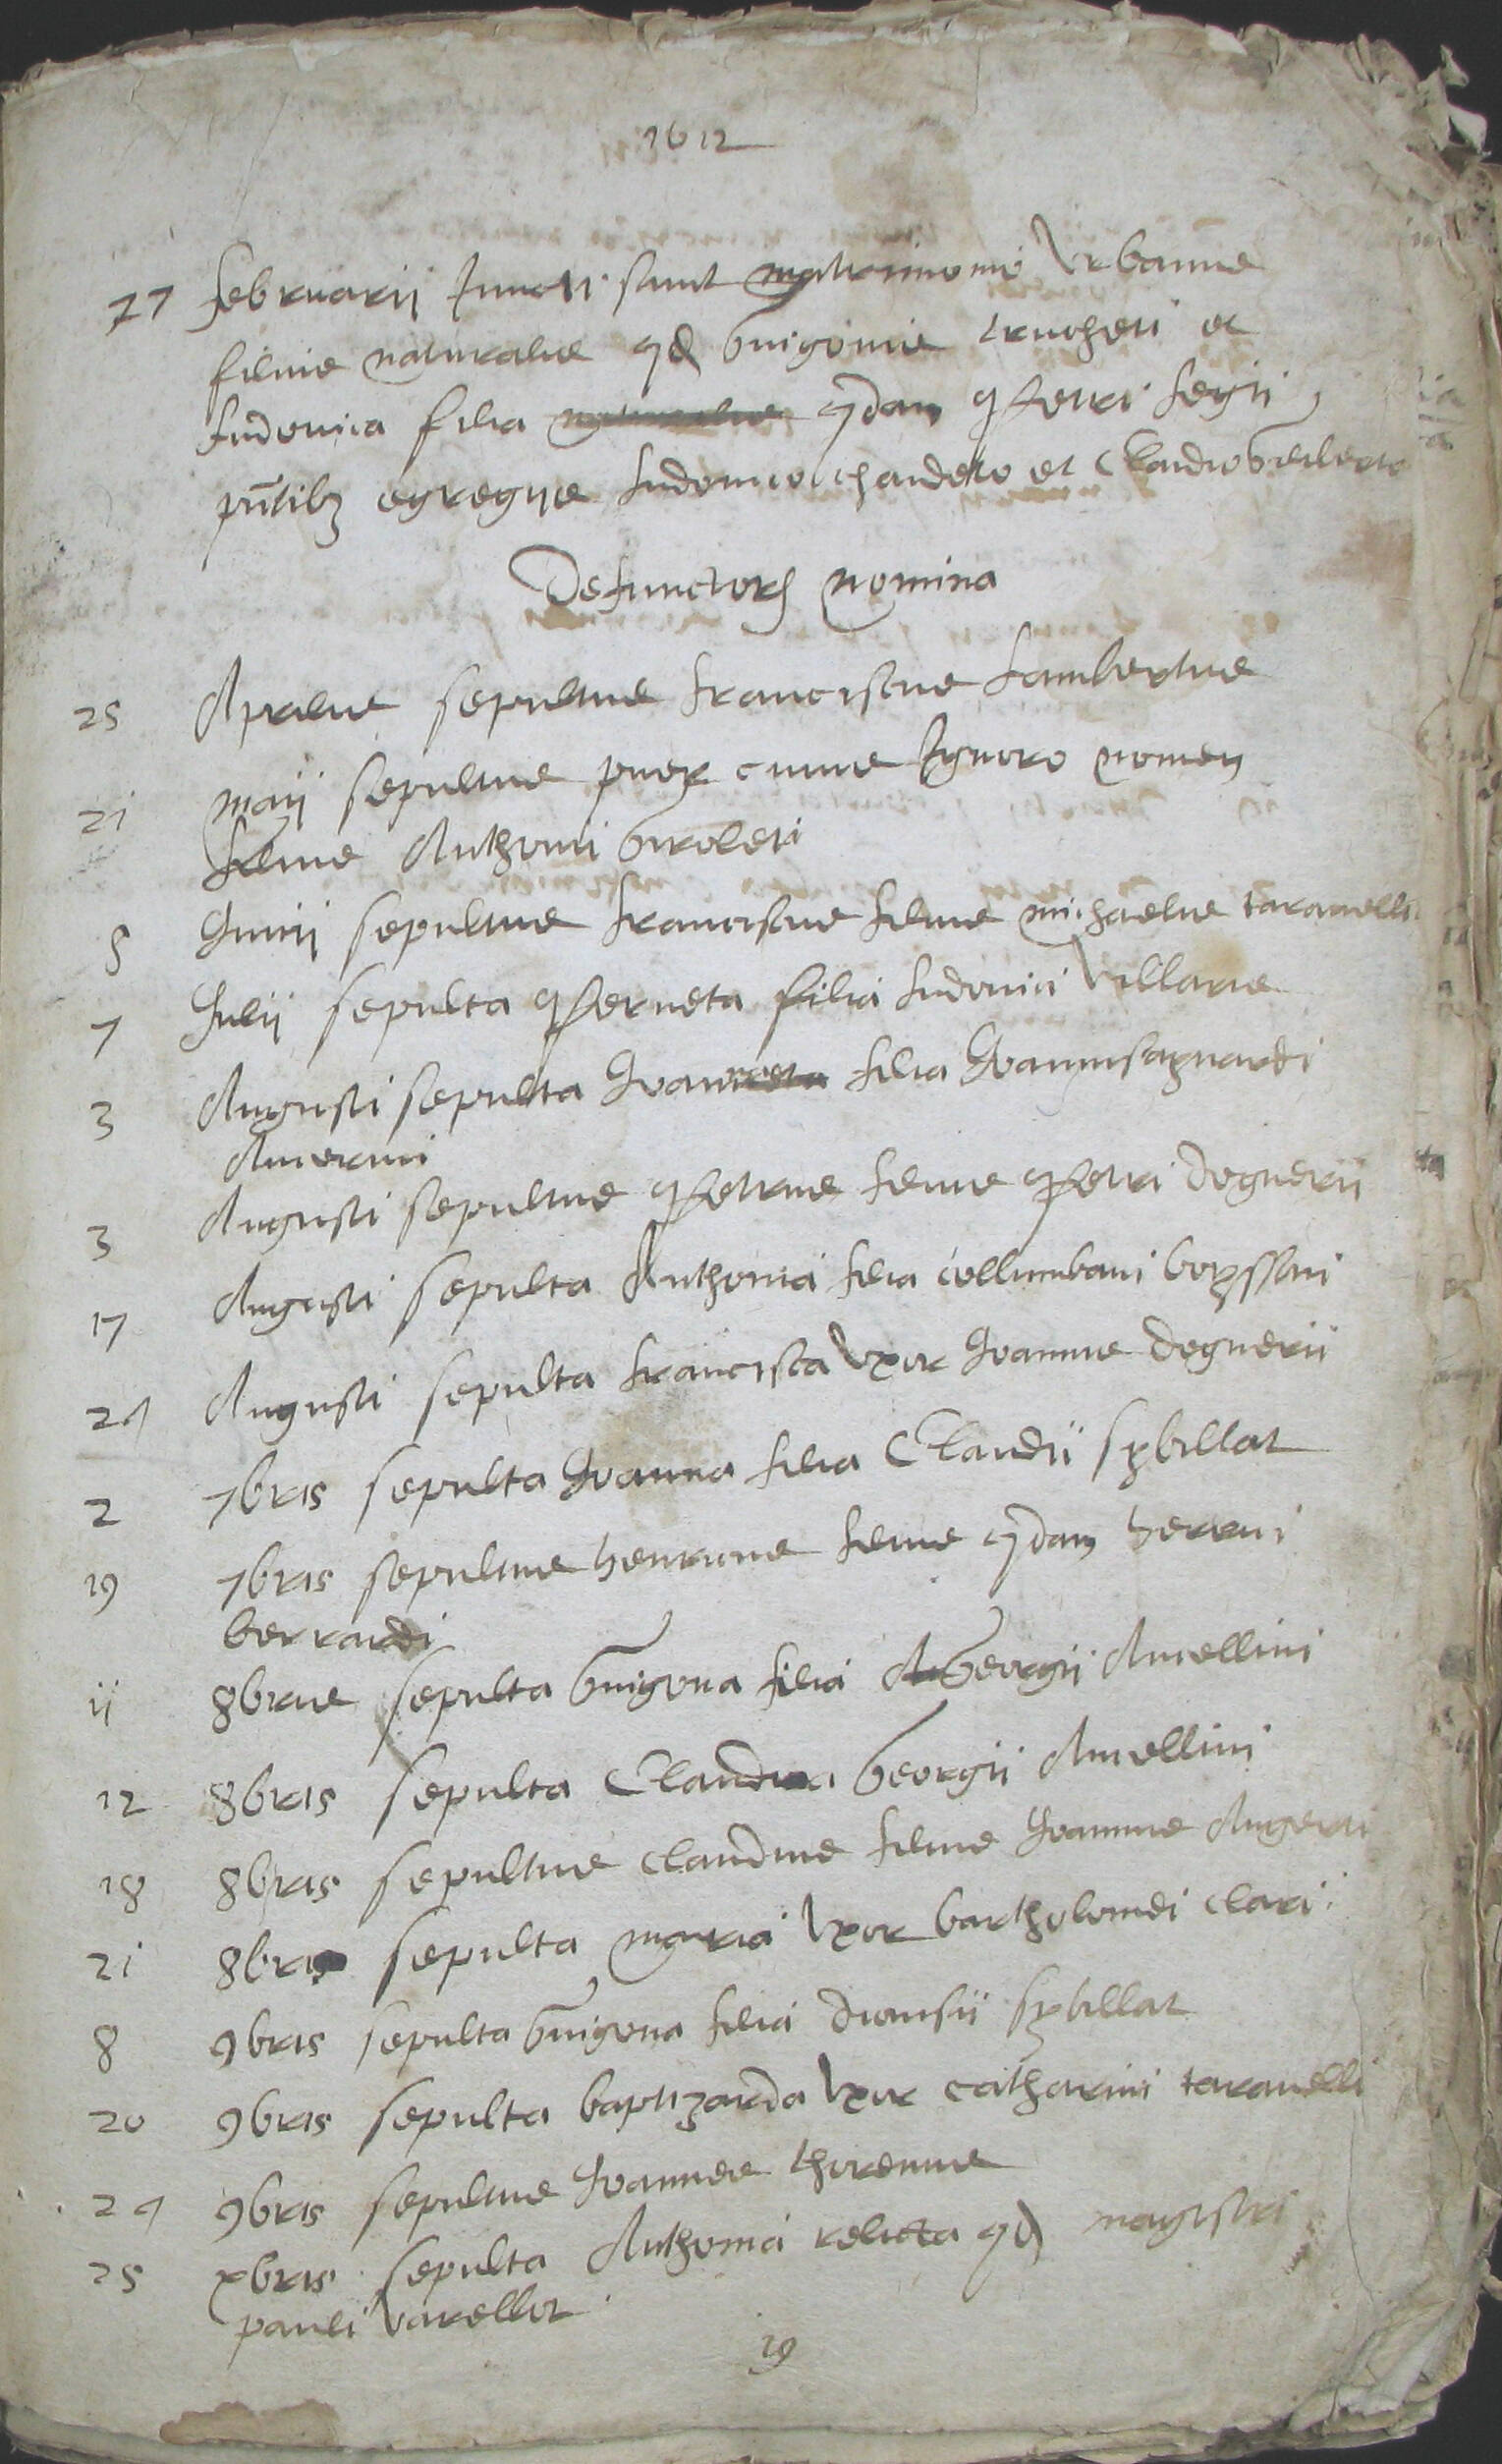 1612
27 februarii Iuncti sunt matrimonio Urbanus
filius naturalis qd Guigonis trucheti et
Ludovica filia naturalis qdam Petri Legii
pntibz egregiis Ludovico chandeto et Claudio
Defunctorz nomina
25 Aprilis sepultus franciscus Lambertus
21 maii sepultus puer cuius Ignoro nomen
filius Anthonii Giroleti
8 Junii sepultus franciscus filius michaelis taravelli
7 Julii sepulta Perneta filia Ludovici Villaris
3 Augusti sepulta Joanneta filia Joannis agnardi
Amerini
3 Augusti sepultus Petrus filius Petri dognerii
17 Augusti sepulta Anthonia filia collumbani boyssoni
24 Augusti sepulta francisca Uxor Joannis dognerii
2 7bris sepulta Joanna filia Claudii sybillat
19 7bris sepultus henricus filius qdam
berrardi
11 8bris sepulta Guigona filia Georgii Amellini
12 8bris sepulta Claudia Georgii Amellini
18 8bris sepultus claudius filius Joannis Augerii
21 8bris sepulta maria Uxor bartholomei clari
8 9bris sepulta Guigona filia dionisii sybillat
20 9bris sepulta baptizarda Uxor catharini taravelli
24 9bris sepultus Joannes
25 xbris sepulta Anthonia relicta qd magistri
pauli Varellot
19